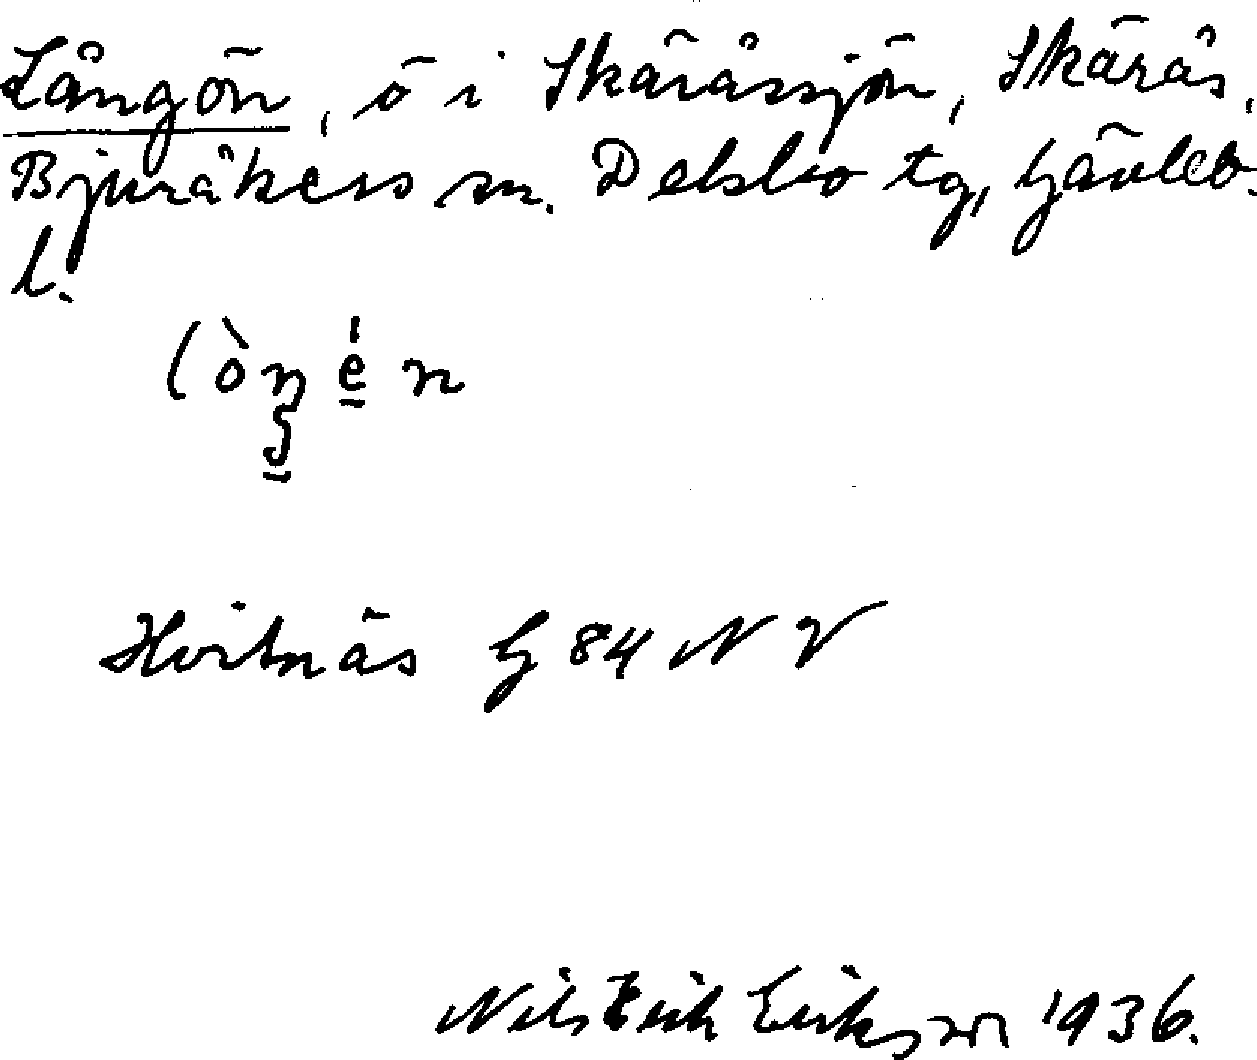 Långön, ö i Skäråssjön, Skärås,
Bjuråkers sn. Delsbo tg, Gävleb.
l.
Hvitnäs G 84 NV
Nils Erik Eriksson 1936.